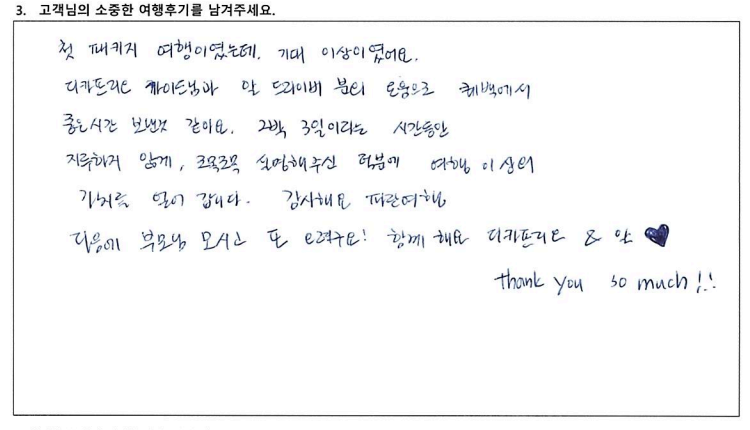 3. 고객님의 소중한 여행후기를 남겨주세요.
첫 패키지 여행이였는데, 기대 이상이였어요.
디카프리오 가이드님과 얀 드라이버 분의 도움으로 퀘백에서
좋은시간 보낸것 같아요. 2박 3일이라는 시간동안
지루하지 않게, 조목조목 설명해주신 덕분에 여행 이상의
가치를 얻어 갑니다. 감사해요 파란여행
다음에 부모님 모시고 또 오려구요! 함께 해요 디카프리오 & 얀 ♥
thank you so much!!